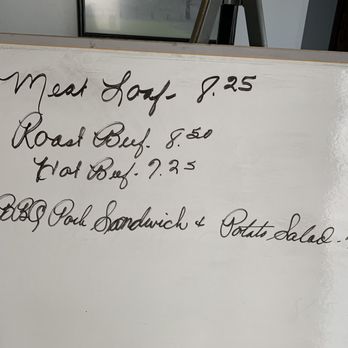 Meat Loaf- 8.25
Roast Beef. 8.50
Hot Beef. 7.25
BBQ Pork Sandwich & Potato Salad -